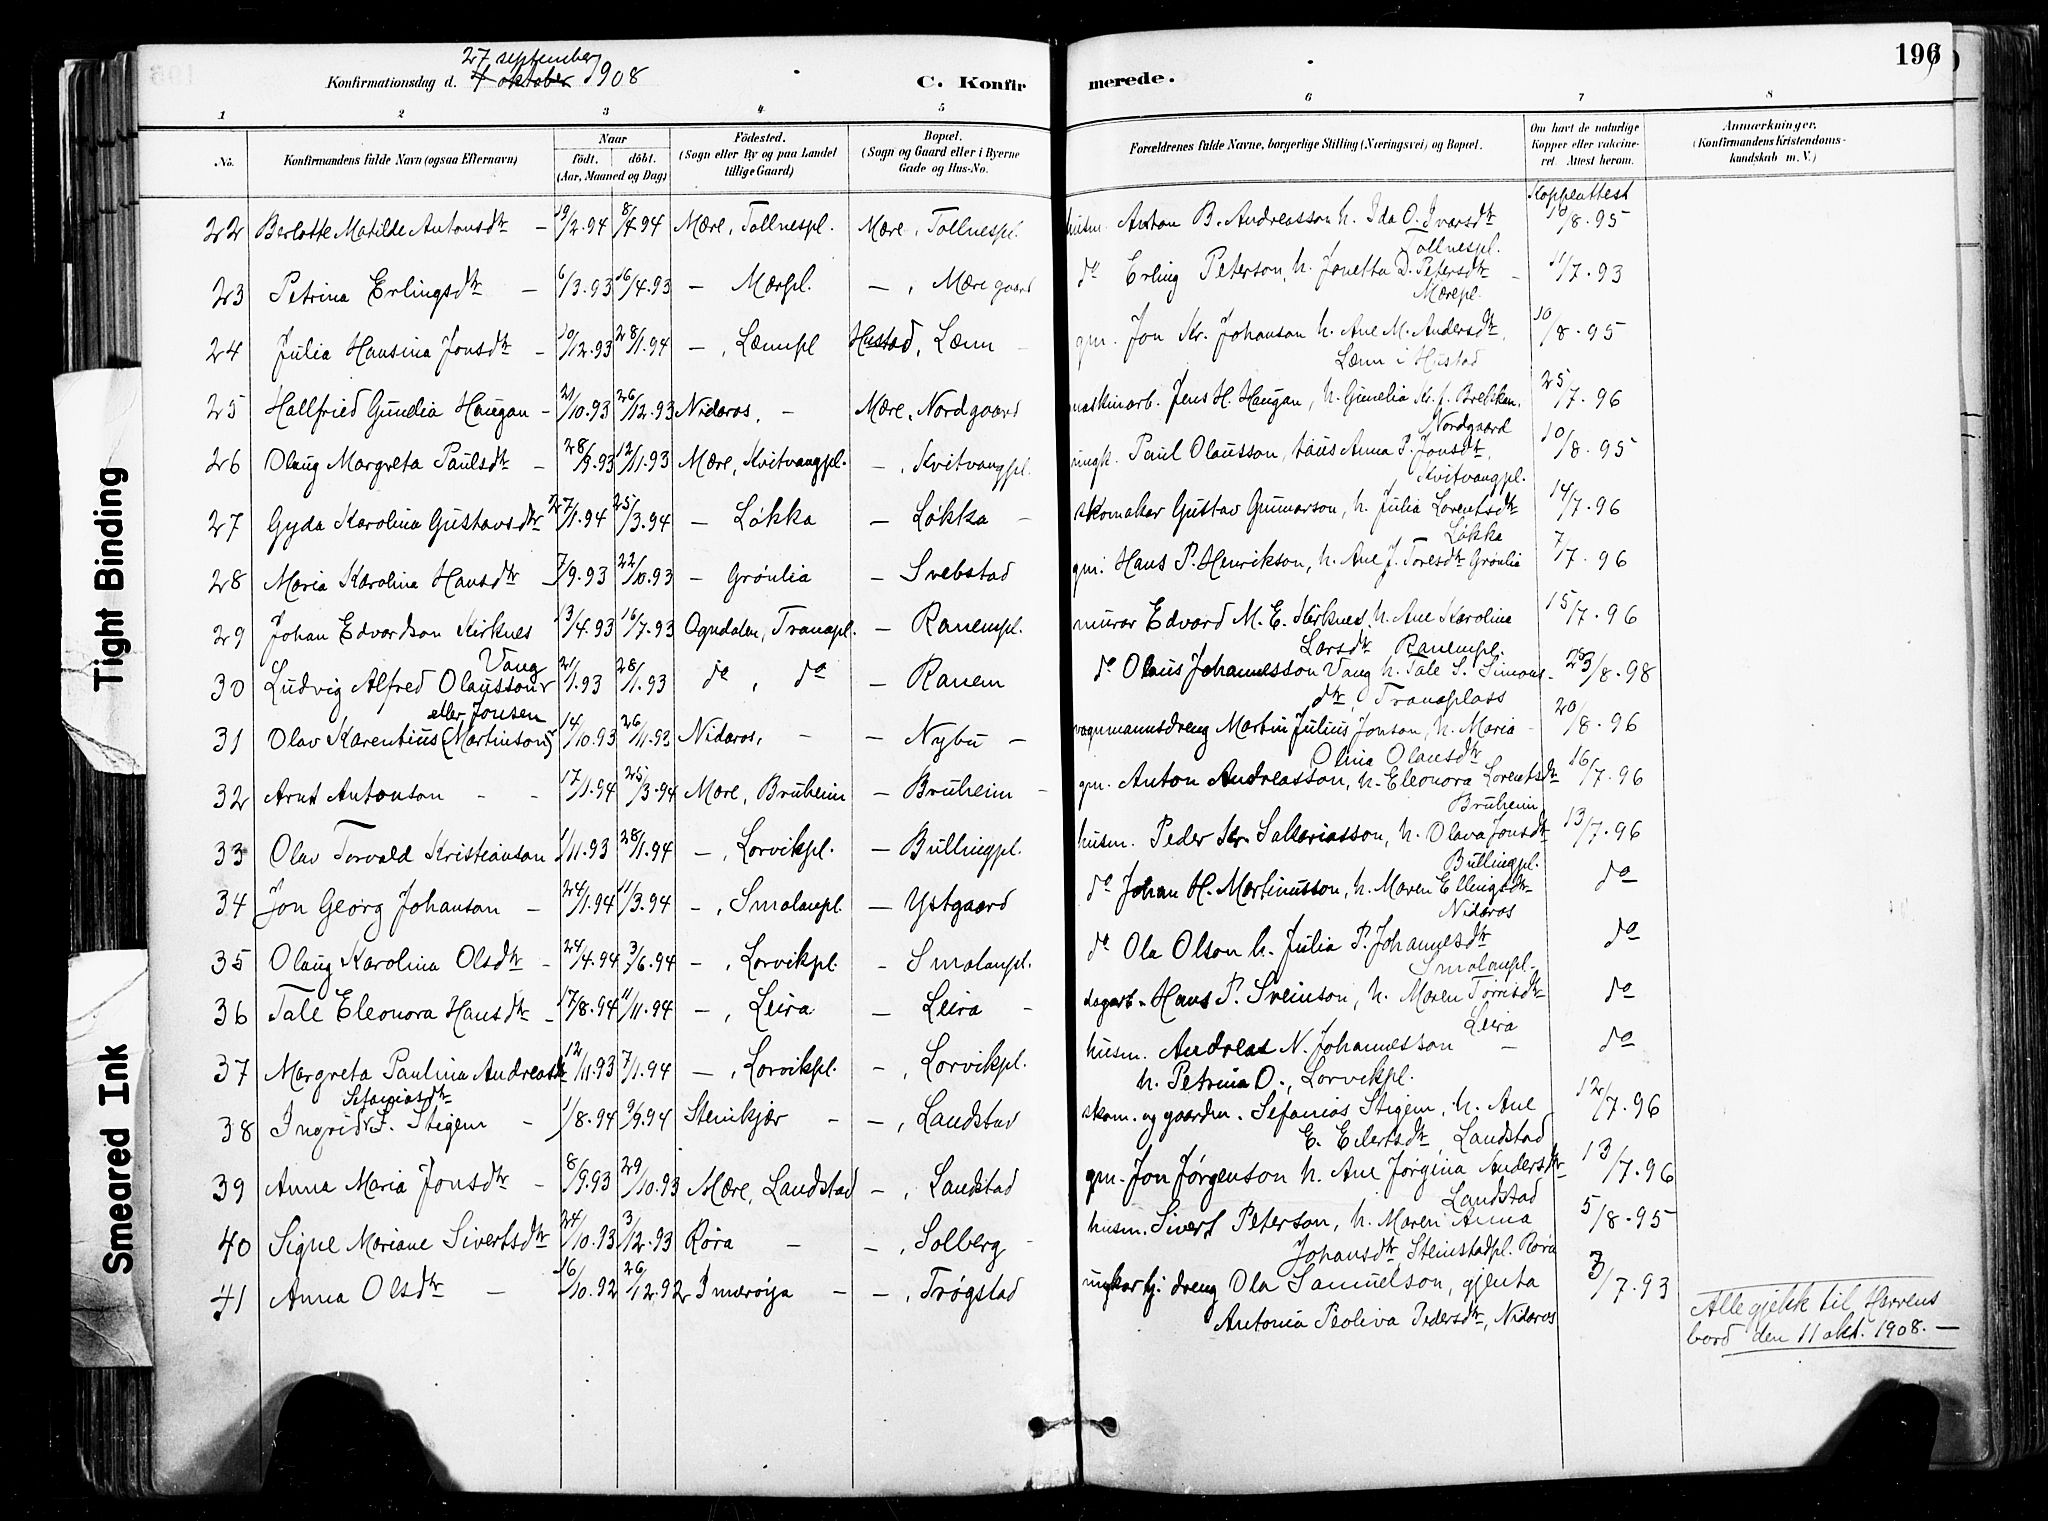 196
27 september
Konfirmationsdag d. 4 oktober 1908
C. Konfir
merede.
1 2 3 4 5 6 7 8
No. Konfirmandens fulde Navn (ogsaa Efternavn) Naar født. døbt. (Aar, Maaned og Dag) Fødested. (Sogn eller By og paa Landet tillige Gaard) Bopæl. (Sogn og Gaard eller i Byerne Gade og Hus-No. Forældrenes fulde Navne, borgerlige Stilling (Næringsvei) og Bopæl. Om havt de naturlige Kopper eller vakcineret. Attest herom. Anmærkninger. (Konfirmandens Kristendomskundskab m. V.)
Koppeattest
22 Berlotte Matilde Antonsdtr – 19/2.94 8/4 94 Mære, Tollnespl. Mære, Tollnespl. husm. Anton B. Andreasson h. Ida O. Ivarsdtr 10/8.95
Tollnespl.
23 Petrina Erlingsdtr – 6/3.93 16/4.93 – Mærpl. –, Mære gaard do Erling Peterson, h. Jonetta D. Petersdtr – 11/7.93
Mærepl.
24 Julia Hansina Jonsdtr – 10/12.93 28/1.94 –, Læmnpl Hustad, Læmn – gm. Jon Kr. Johanson h. Ane M. Andersdtr, 10/8.95
Læmn i Hustad
25 Hallfried Gunelia Haugan – 21/10.93 26/12.93 Nidaros, – Mære, Nordgaard maskinarb. Jens H. Haugan, h. Gunelia Kr. f. Brekken, 25/7.96
Nordgaard
26 Olaug Margreta Paulsdtr – 28/9.93 12/11.93 Mære, Kvitvangpl. –, Kvitvangpl. ungk. Paul Olausson, taus Anna P. Jonsdtr, 10/8.95
Kvitvangpl.
27 Gyda Karolina Gustavsdtr 27/1.94 25/3.94 – Løkka – Løkka – skomakar Gustav Gunnarson, h. Julia Lorentsdtr 14/7.96
Løkka
28 Maria Karolina Hansdtr – 7/9.93 22/10.93 – Grønlia – Svebstad gm. Hans P. Henrikson, h. Ane J. Toresdtr Grønlia 7/7.96
29 Johan Edvardson Kirknes 13/4.93 16/7.93 Ogndalen, Tranapl. – Ranempl. murar Edvard M. E. Kirknes, h. Ane Karolina 15/7.96
Larsdtr Ranempl.
Vang
30 Ludvig Alfred Olausson 21/1.93 28/1.93 do, do – Ranem do Olaus Johannesson Vang h. Tale S. Simons- 23/8.98
dtr, Tranaplass
eller Jonsen
31 Olav Karentius (Martinson) 14/10.93 26/11.93 Nidaros, – – Nybu – vognmannsdreng Martin Julius Jonson, h. Maria 20/8.96
Olina Olausdtr
32 Arnt Antonson – – 17/1.94 25/3.94 Mære, Bruheim – Bruheim – gm. Anton Andreasson, h. Eleonora Lorentsdtr 16/7.96
Bruheim
33 Olav Torvald Kristianson 1/11.93 28/1.94 –, Lorvikpl. – Bullingpl. husm. Peder Kr. Sakariasson, h. Olava Jonsdtr 13/7.96
Bullingpl.
34 Jon Georg Johanson – 24/1.94 11/3.94 –, Smolanpl. – Ystgaard do Johan H. Martinusson, h. Maren Ellingsdtr do
Nidaros
35 Olaug Karolina Olsdtr – 24/4.94 3/6.94 –, Lorvikpl. – Smolanpl. do Ola Olson h. Julia P. Johannesdtr do
Smolanpl.
36 Tale Eleonora Hansdtr – 17/8.94 11/11.94 –, Leira – Leira – dagarb. Hans P. Sveinson, h. Maren Torrisdtr do
Leira
37 Margreta Paulina Andreasdtr 12/11.93 7/1.94 –, Lorvikpl. –, Lorvikpl. husm. Andreas N. Johannesson – do
h. Petrina O., Lorvikpl.
Sefaniasdtr
38 Ingrid S. Stigem – 1/8.94 9/9.94 Steinkjær – –, Landstad skom. og gaardm. Sefanias Stigem, h. Ane 12/7.96
E. Eilertsdtr, Landstad
39 Anna Maria Jonsdtr – 8/9.93 29/10.93 Mære, Landstad –, Landstad gm. Jon Jørgenson h. Ane Jørgina Andersdtr 13/7.96
Landstad
40 Signe Mariane Sivertsdtr 24/10.93 3/12.93 Røra – –, Solberg – husm. Sivert Peterson, h. Maren Anna 5/8.95
Johansdtr Steinstadpl. Røra
41 Anna Olsdtr – 16/10.92 26/12.92 Inderøya – –, Trøgstad ungkar tj. dreng Ola Samuelson, gjenta 3/7.93
Antonia Peoliva Pedersdtr, Nidaros
Alle gjekk til Herrens
bord den 11 okt. 1908. –
Tight Binding
Smeared Ink